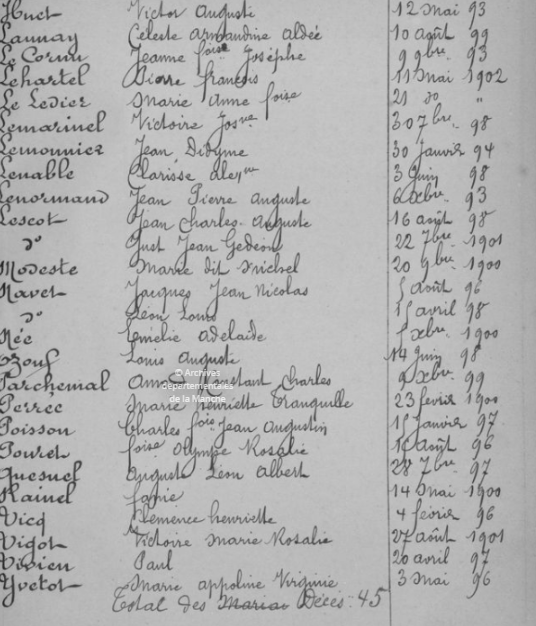 Huet Victor Auguste 12 mai 93
Launay Céleste Armandine Aldée 10 août 99
Le Cornu Jeanne foise Josèphe 9 9bre 93
Lehartel Pierre françois 11 mai 1902
Le Ledier Marie Anne foise 21 do "
Lemarinel Victoire Josne 30 7bre 98
Lemonnier Jean Didyme 30 Janvier 94
Lenable Clarisse Alexne 3 Juin 98
Lenormand Jean Pierre Auguste 6 xbre 93
Lescot Jean Charles Auguste 16 août 98
do Just Jean Gedeon 22 7bre 1901
Modeste Marie dit Michel 20 9bre 1900
Navet Jacques Jean Nicolas 5 août 96
do Léon Louis 15 avril 98
Née Emélie Adelaide 5 xbre 1900
Louis Auguste 14 Juin 98
Parchemal Constant Charles 9 xbre 99
Perrée Marie henriette Tranquille 23 fevier 1900
Poisson Charles fois Jean Augustin 15 Janvier 97
Pouret foise Olympe Rosalie août 96
Quesnel Auguste Léon Albert 28 7bre 97
Rainel 14 mai 1900
Vicq Clemence henriette 4 février 96
Vigot Victoire Marie Rosalie 27 août 1901
Vivien Paul 20 avril 97
Yvetot Marie appoline Virginie 3 mai 96
Total des Décès : 45
© Archives
départementales
de la Manche